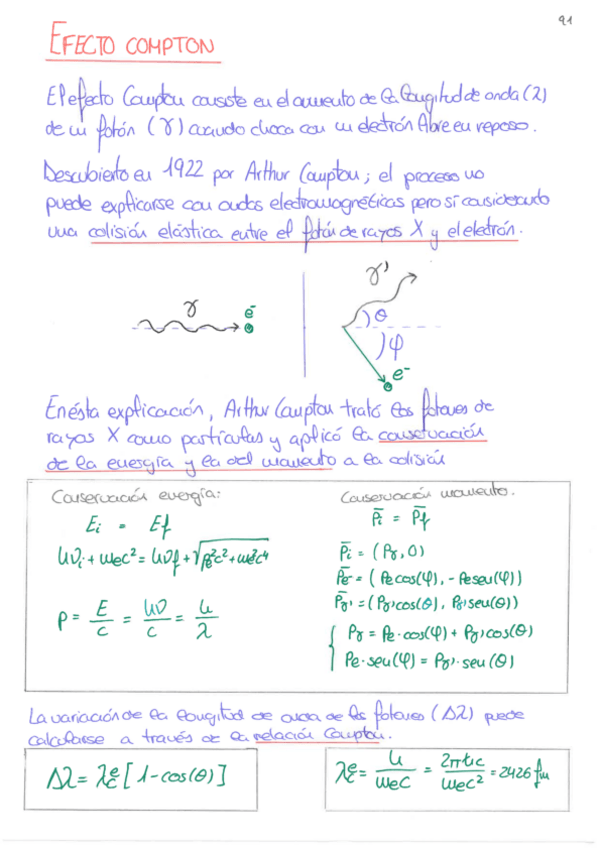 9.1
EFECTO COMPTON
El efecto Compton consiste en el aumento de la longitud de onda (λ)
de un fotón (γ) cuando choca con un electrón libre en reposo.
Descubierto en 1922 por Arthur Compton; el proceso no
puede explicarse con ondas electromagnéticas pero sí considerando
una colisión elástica entre el fotón de rayos X y el electrón.
γ e⁻
γ' θ φ e⁻
En ésta explicación, Arthur Compton trató los fotones de
rayos X como partículas y aplicó la conservación
de la energía y la del momento a la colisión
Conservación energía:
Ei = Ef
hνi + mec² = hνf + √(pe²c² + me²c⁴)
p = E/c = hν/c = h/λ
Conservación momento.
p̄i = p̄f
p̄i = (pγ, 0)
p̄e⁻ = (pe cos(φ), -pe sen(φ))
p̄γ' = (pγ' cos(θ), pγ' sen(θ))
{ pγ = pe·cos(φ) + pγ' cos(θ)
pe·sen(φ) = pγ'·sen(θ)
La variación de la longitud de onda de los fotones (Δλ) puede
calcularse a través de la relación Compton.
Δλ = λc^e [1-cos(θ)]
λc^e = h/mec = 2πħc/mec² = 2426 fm